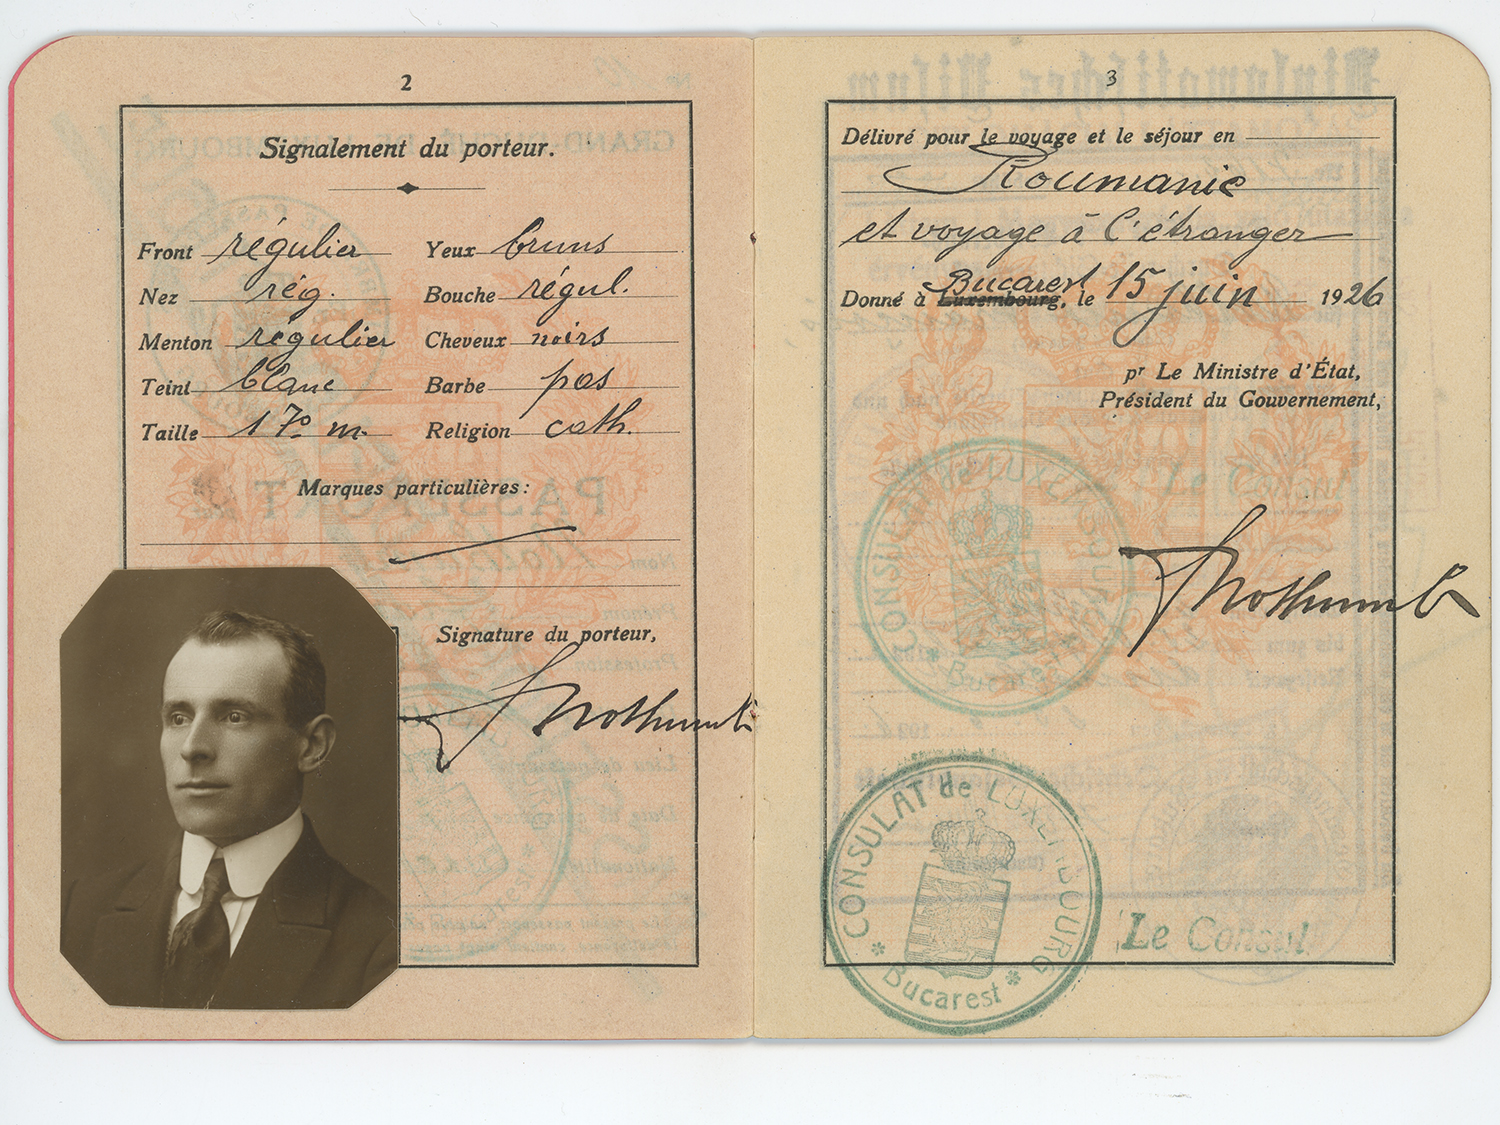 2
Signalement du porteur.
Front régulier Yeux bruns
Nez rég. Bouche régul.
Menton régulier Cheveux noirs
Teint blanc Barbe pas
Taille 170 m. Religion cath.
Marques particulières:
Signature du porteur,
3
Délivré pour le voyage et le séjour en
Roumanie
et voyage à l'étranger
Bucarest
Donné à Luxembourg, le 15 juin 1926
pr Le Ministre d'État,
Président du Gouvernement,
CONSULAT de LUXEMBOURG
Bucarest
CONSULAT de LUXEMBOURG
* Bucarest *
Le Consul